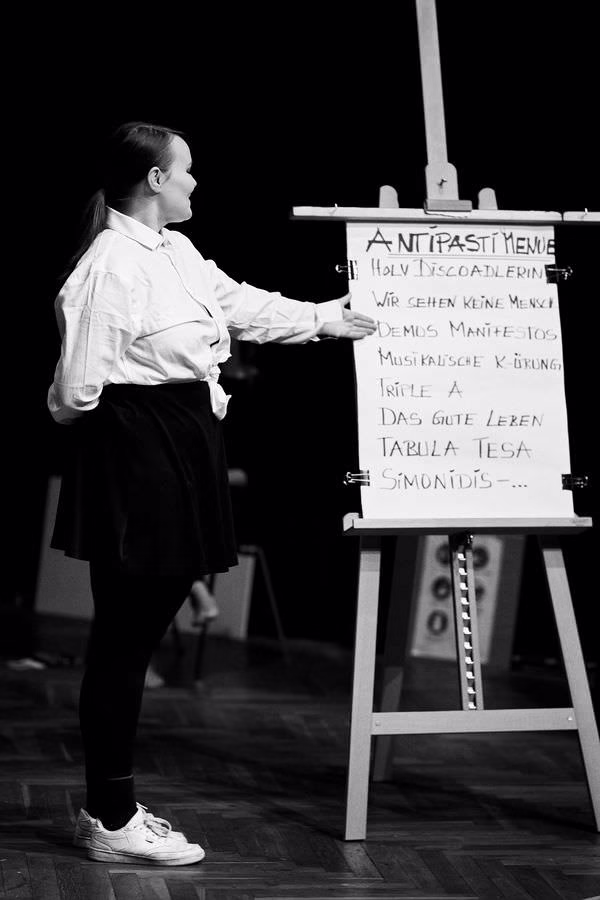 ANTIPASTI MENUE
HOLY DISCOADLERIN
WIR SEHEN KEINE MENSCH
DEMOS MANIFESTOS
MUSIKALISCHE K-ÖRUNG
TRIPLE A
DAS GUTE LEBEN
TABULA TESA
SIMONIDIS-...